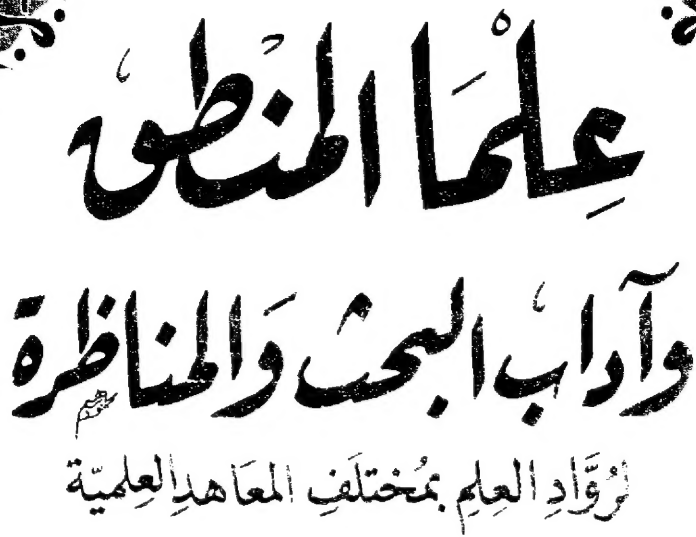 عِلْمَا المنْطِق
وَآدابُ البَحث وَالمناظرة
لرُوَّادِ العِلمِ بمُختلَفِ المعَاهدِ العِلميّة